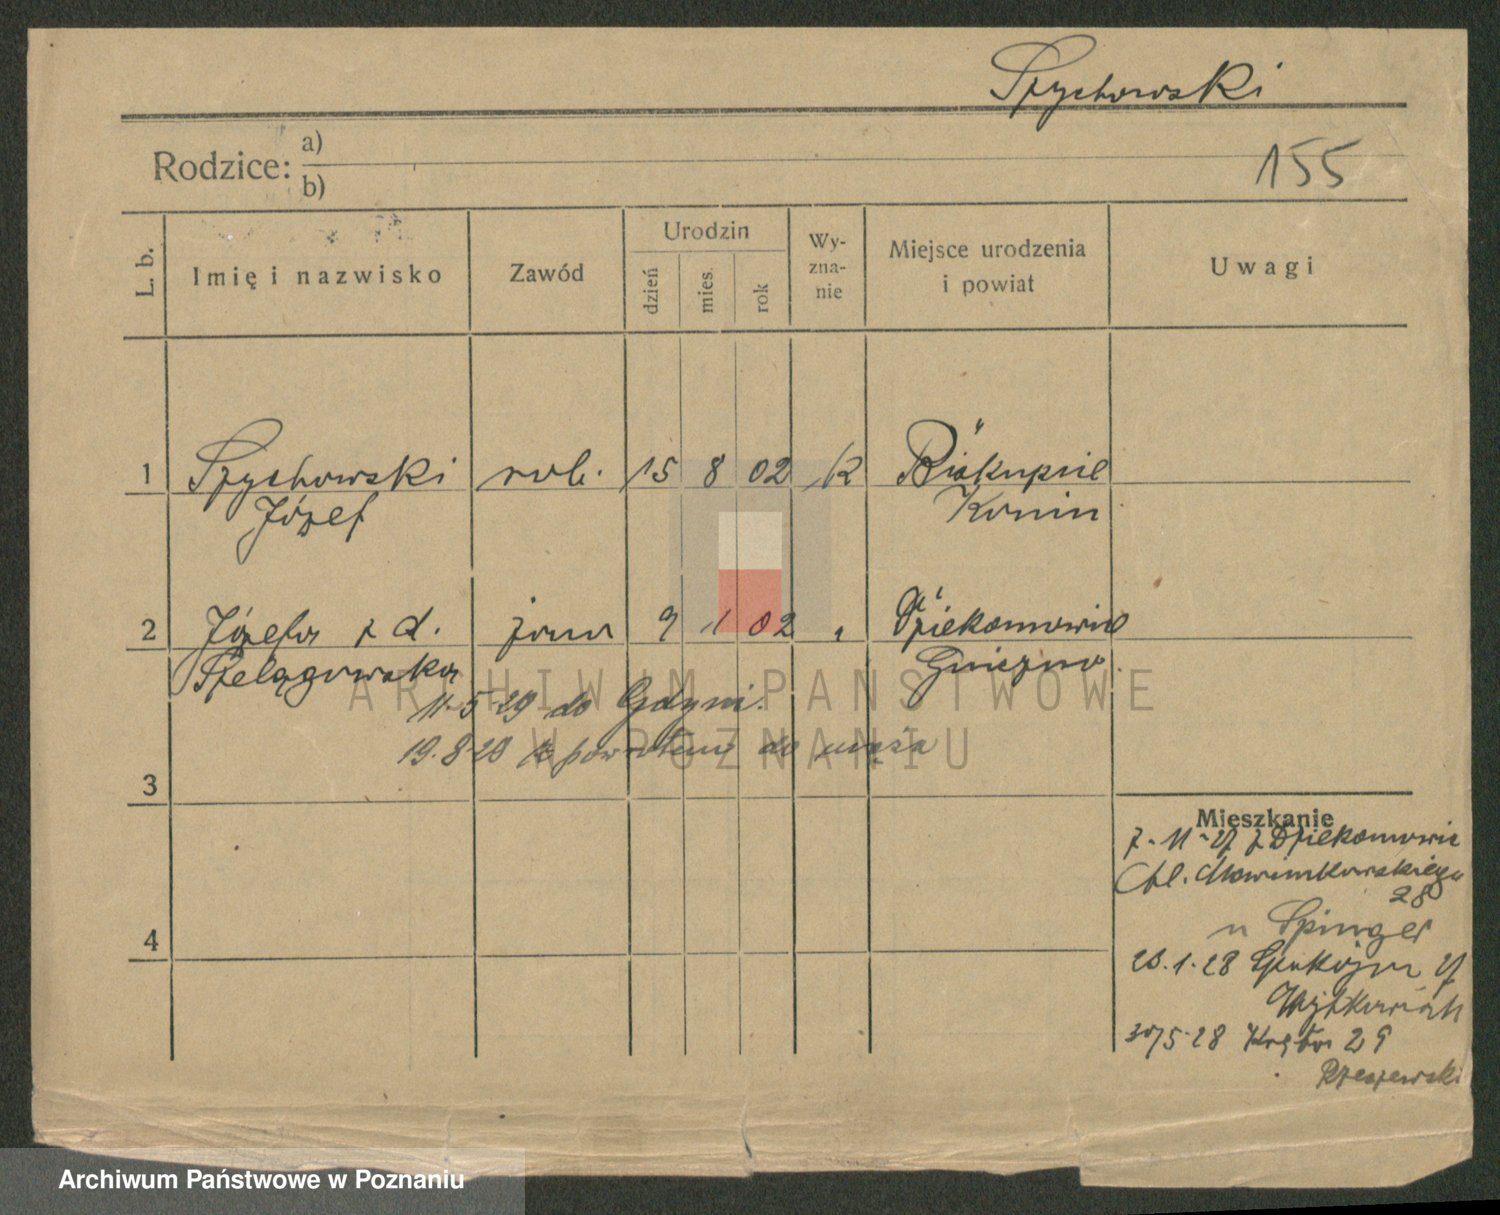 Szychowski
155
Rodzice: a)
b)
L. b. Imię i nazwisko Zawód Urodzin dzień mies. rok Wy-zna-nie Miejsce urodzenia i powiat Uwagi
1 Szychowski rob. 15 8 02 /k Biskupie
Józef Konin
2 Józefa z d. żona 9 1 02 " Dziekanowice
Szelągowska Gniezno.
ARCHIWUM PAŃSTWOWE
11-5-29 do Gdyni.
W POZNANIU
19.8-29 z powrotem do męża
3
Mieszkanie
7-11-27 z Dziekanowic
Chl.
28
u Springer
28.1.28 27
30/5-28 29
Rzeszewski
4
Archiwum Państwowe w Poznaniu